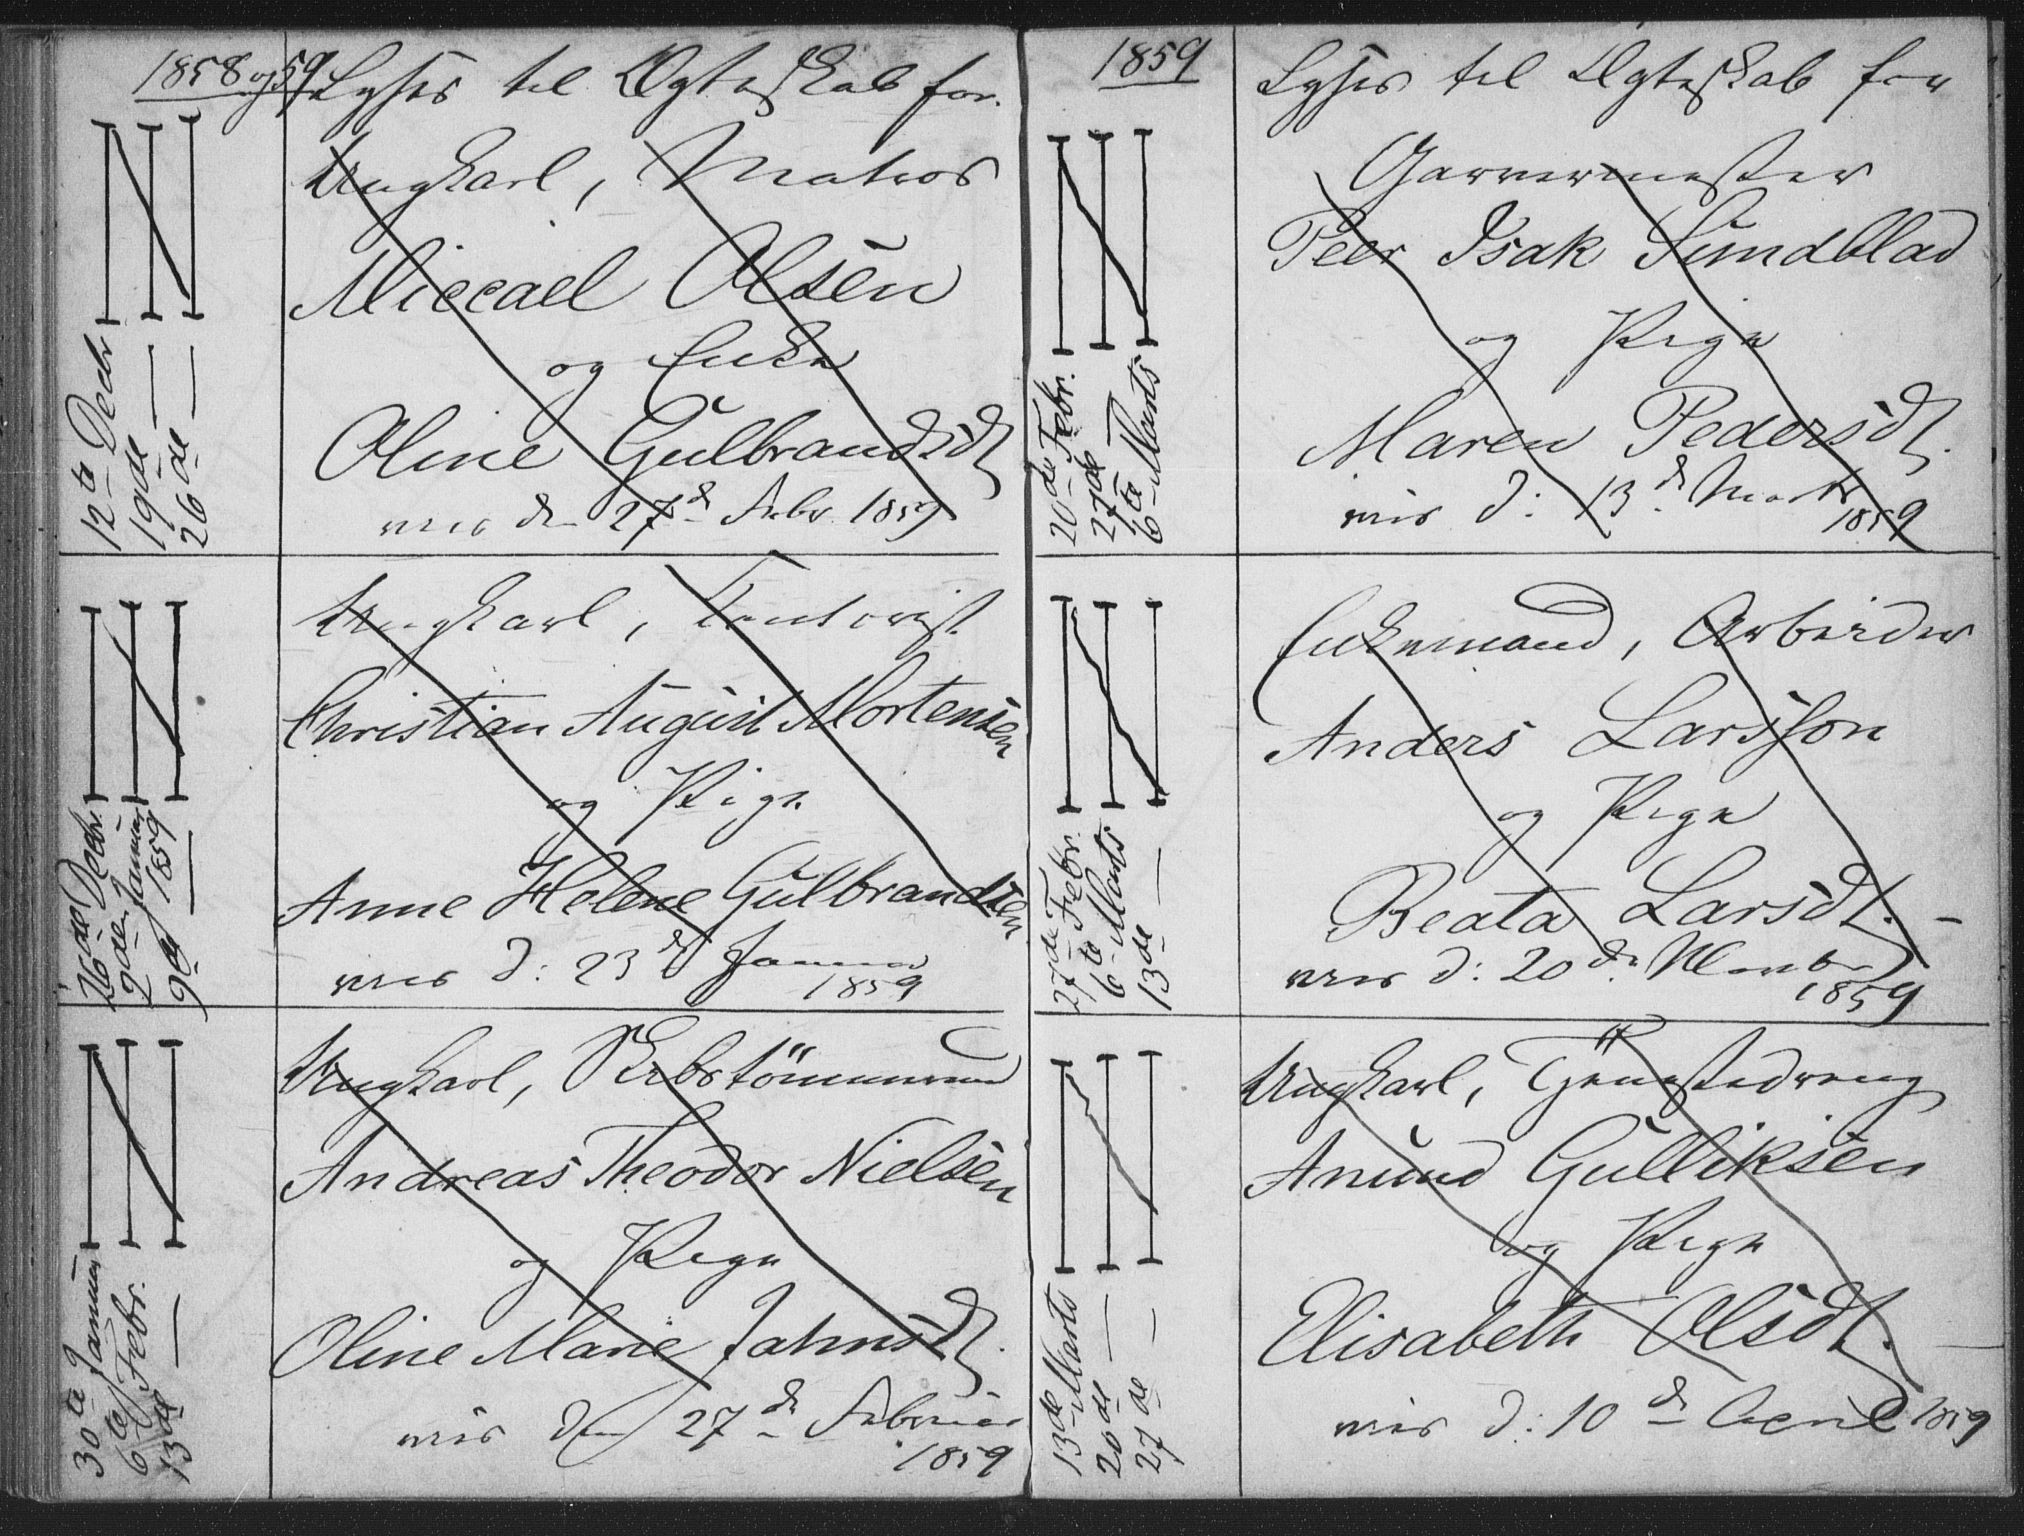 1858 og 59
Lyses til Ægteskab for
12te Decbr
19de —
26de —
Ungkarl, Matros
Miccael Olsen
og Enke
Oline Gulbrandsd.
viet den 27de Febr. 1859
26de Decbr.
2den Januar
9de — 1859
Ungkarl, Contorist
Christian August Mortensen
og Pige
Anne Helene Gulbrandsen
viet d: 23de Januar
1859
30te Januar
6te Febr.
13de —
Ungkarl,
Andreas Theodor Nielsen
og Pige
Oline Marie Jahnsd.
viet den 27de Februar
1859
1859
Lyses til Ægteskab for
20de Febr.
27de
6te Marts
Garvermester
Peer Isak Sundblad
og Pige
Maren Pedersd.
viet d: 13de Marts
1859
27de Febr.
6te Marts
13de —
Enkemand, Arbeider
Anders Larsson
og Pige
Beata Larsd. —
viet d: 20de
1859
13de Marts
20de —
27de —
Ungkarl, Tjenestedreng
Anund Gulliksen
og Pige
Elisabeth Olsd.
viet d: 10de April 1859